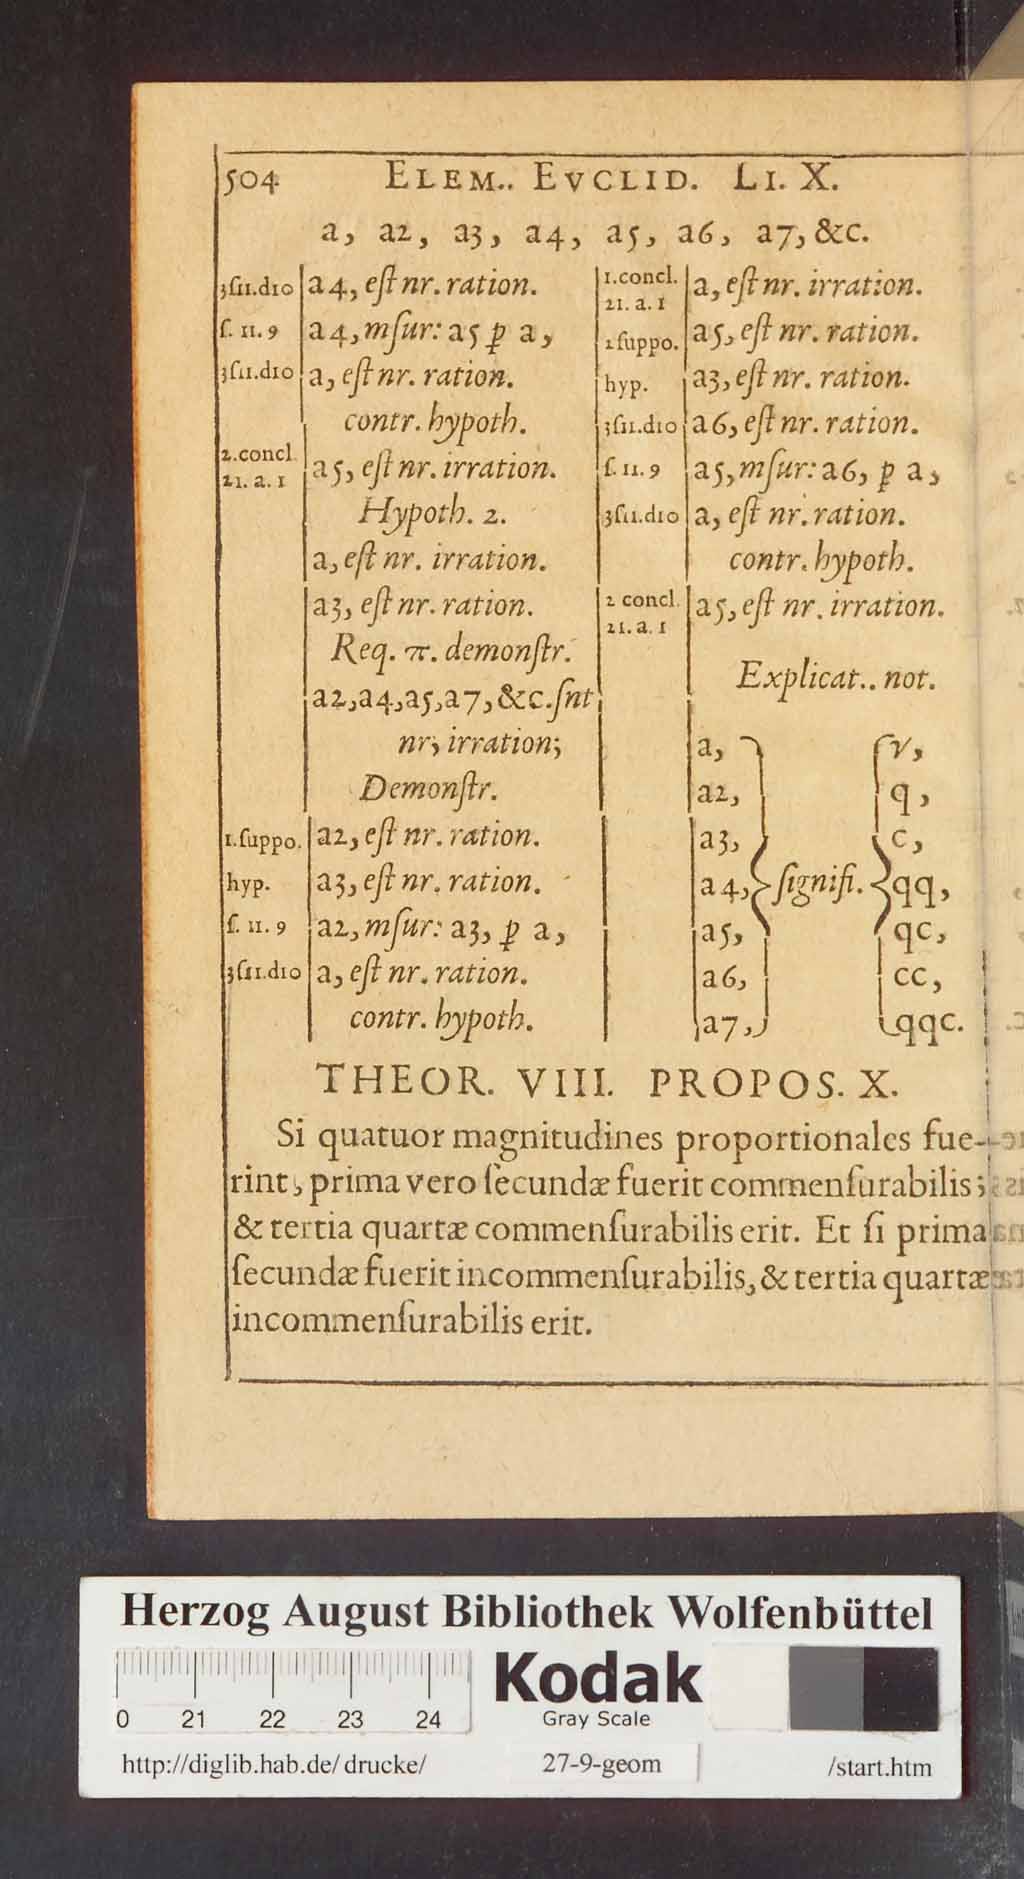 504 ELEM.. EVCLID. LI. X.
a, a2, a3, a4, a5, a6, a7, &c.
3ſ11.d10 a4, eſt nr. ration.
ſ. 11. 9 a4, mſur: a5 ꝑ a,
3ſ11.d10 a, eſt nr. ration.
contr. hypoth.
2.concl.
21. a. 1 a5, eſt nr. irration.
Hypoth. 2.
a, eſt nr. irration.
a3, eſt nr. ration.
Req. π. demonſtr.
a2, a4, a5, a7, &c. ſnt
nr; irration;
Demonſtr.
1.ſuppo. a2, eſt nr. ration.
hyp. a3, eſt nr. ration.
ſ. 11. 9 a2, mſur: a3, ꝑ a,
3ſ11.d10 a, eſt nr. ration.
contr. hypoth.
1.concl.
21. a. 1 a, eſt nr. irration.
1ſuppo. a5, eſt nr. ration.
hyp. a3, eſt nr. ration.
3ſ11.d10 a6, eſt nr. ration.
ſ. 11. 9 a5, mſur: a6, ꝑ a,
3ſ11.d10 a, eſt nr. ration.
contr. hypoth.
2 concl.
21. a. 1 a5, eſt nr. irration.
Explicat.. not.
a, r,
a2, q,
a3, c,
a4, ſignifi. qq,
a5, qc,
a6, cc,
a7, qqc.
THEOR. VIII. PROPOS. X.
Si quatuor magnitudines proportionales fue-
rint, prima vero ſecundæ fuerit commenſurabilis;
& tertia quartæ commenſurabilis erit. Et ſi prima
ſecundæ fuerit incommenſurabilis, & tertia quartæ
incommenſurabilis erit.
Herzog August Bibliothek Wolfenbüttel
0 21 22 23 24
Kodak
Gray Scale
http://diglib.hab.de/drucke/ 27-9-geom /start.htm